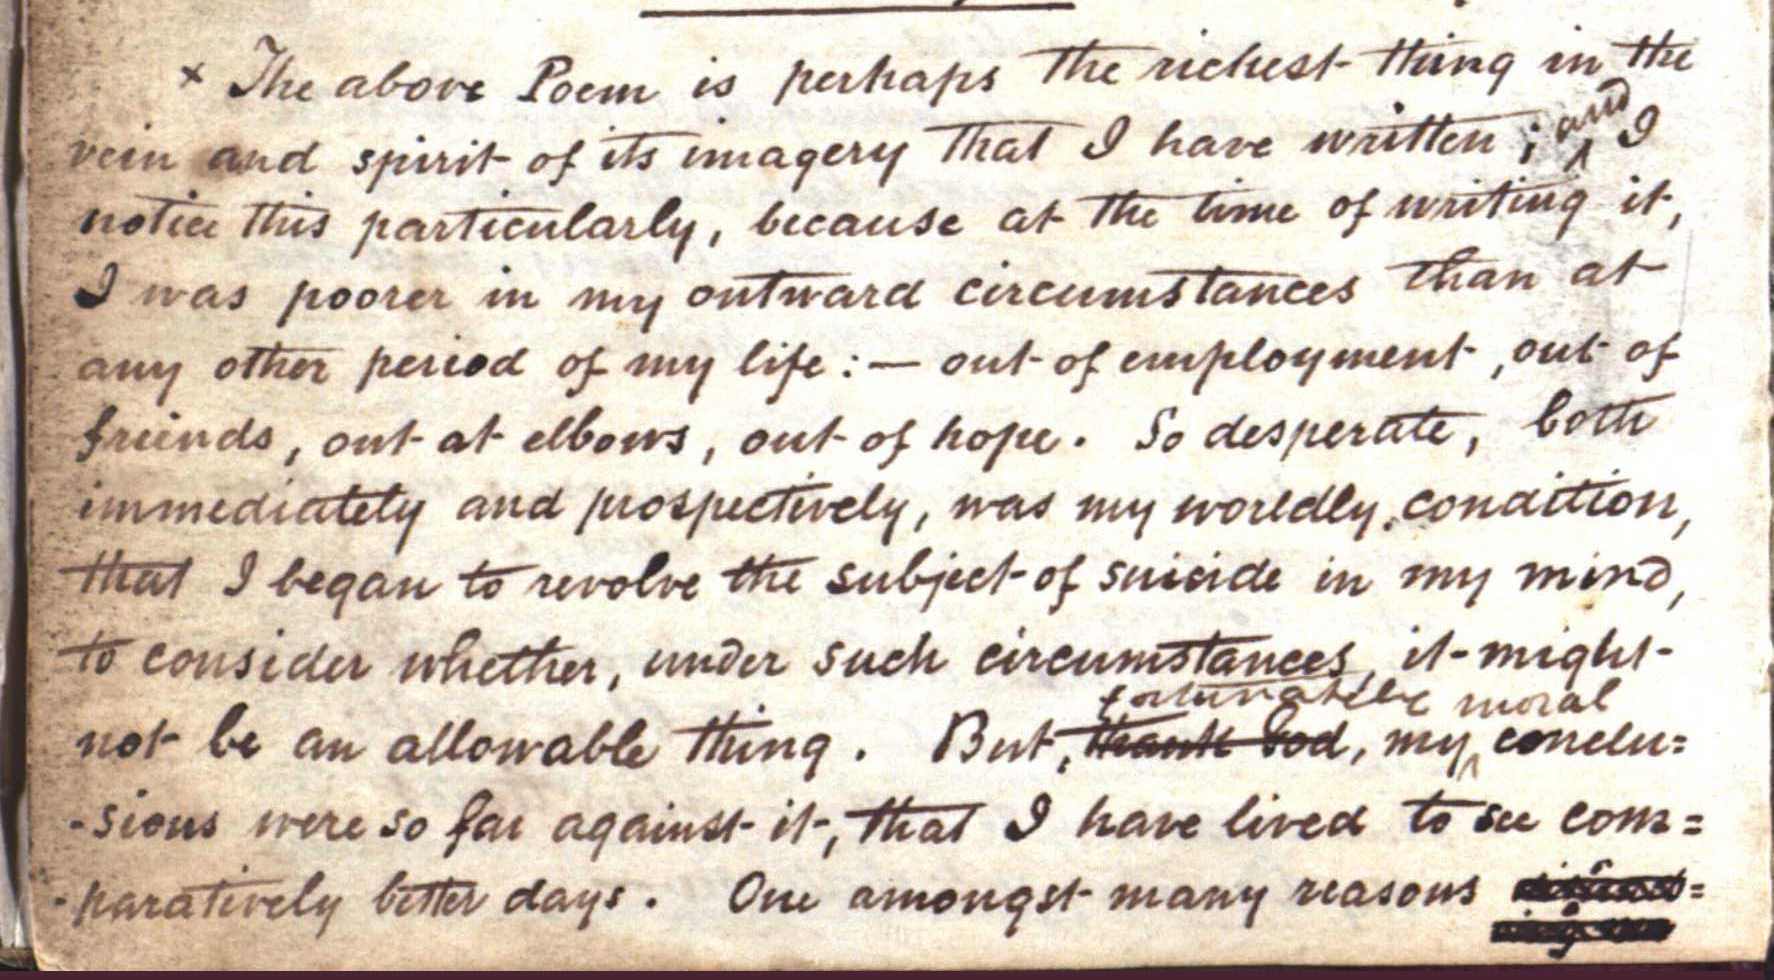 × The above Poem is perhaps the richest thing in the
vein and spirit of its imagery that I have written; and I
notice this particularly, because at the time of writing it,
I was poorer in my outward circumstances than at
any other period of my life:— out of employment, out of
friends, out at elbows, out of hope. So desperate, both
immediately and prospectively, was my worldly condition,
that I began to revolve the subject of suicide in my mind,
to consider whether, under such circumstances, it might
fortunately moral
not be an allowable thing. But, thank God, my conclu=
-sions were so far against it, that I have lived to see com=
-paratively better days. One amongst many reasons